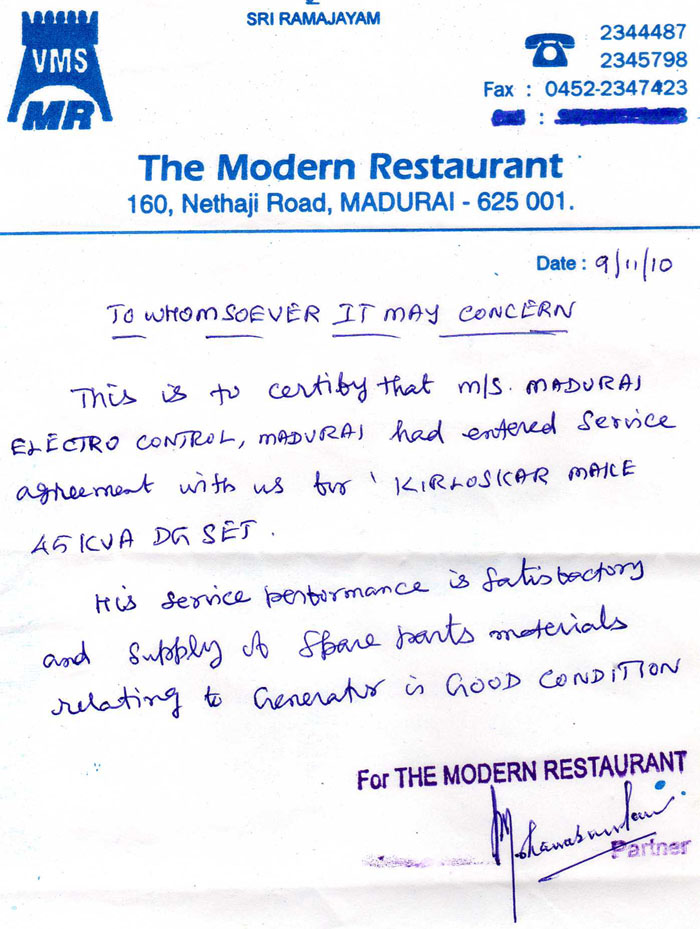 SRI RAMAJAYAM
VMS
MR
2344487
2345798
Fax : 0452-2347423
The Modern Restaurant
160, Nethaji Road, MADURAI - 625 001.
Date : 9/11/10
TO WHOMSOEVER IT MAY CONCERN
This is to certify that M/S. MADURAI
ELECTRO CONTROL, MADURAI had entered Service
agreement with us for ' KIRLOSKAR MAKE
45 KVA DG SET.
His service performance is satisfactory
and supply of spare parts materials
relating to Generator is GOOD CONDITION
For THE MODERN RESTAURANT
Partner